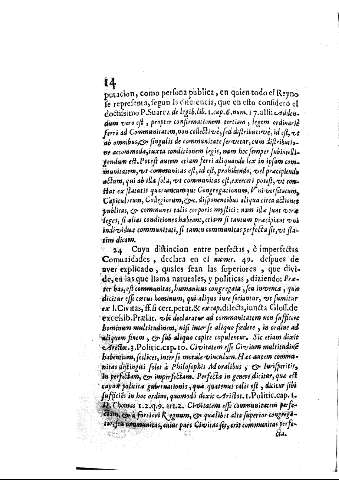 14
putacion, como persona publica, en quien todo el Reyno
se representa, segun la diferencia, que en esto consideró el
doctissimo P. Suarez de legib. lib. 1. cap. 6. num. 17. illic: Adden-
dum vero est, propter confirmationem tertiam, legem ordinariè
ferri ad Communitatem, non collectivè, sed distributivè, id est, vt
ab omnibus, & singulis de communitate servetur, cum distributio-
ne accommoda, iuxta conditionem legis, nam hoc semper subintelli-
gendum est. Potest autem etiam ferri aliquando lex in ipsam com-
munitatem, vt communitas est, id est, prohibendo, vel præcipiendo
actum, qui ab illa sola, vt communitas est, exerceri potest, vt con-
stat ex statutis quarumcumque Congregationum, Vniversitatum,
Capitulorum, Collegiorum, &c. disponentibus aliqua circa actiones
publicas, & communes talis corporis mystici: nam illæ sunt veræ
leges, si alias conditiones habeant, etiam si tantum præcipiant vni
individuæ communitati, si tamen communitas perfecta sit, vt sta-
tim dicam.
24 Cuya distincion entre perfectas, è imperfectas
Comunidades, declara en el numer. 19. despues de
aver explicado, quales sean las superiores, que divi-
de, en las que llama naturales, y politicas, diziendo: Præ-
ter has, est communitas, humanitas congregata, seu inventa, quæ
dicitur esse cœtus hominum, qui aliquo iure sotiantur, vt sumitur
ex l. Civitas, ff. si cert. petat. & ex cap. dilecta, iuncta Gloss. de
excessib. Prælat. vt declaratur ad communitatem non sufficere
hominum multitudinem, nisi inter se aliquo fœdere, in ordine ad
aliquem finem, & sub aliquo capite copuletur. Sic etiam dixit
Arist. 3. Politic. cap. 10. Civitatem esse Civium multitudinem
habentium, scilicet, inter se morale vinculum. Hæc autem commu-
nitas distingui solet à Philosophis Moralibus, & Iurisperitis,
in perfectam, & imperfectam. Perfecta in genere dicitur, quæ est
capax politicæ gubernationis, quæ quatenus talis est, dicitur sibi
sufficiens in hoc ordine, quomodo dixit Aristot. 1. Politic. cap. 1.
D. Thomas 1. 2. q. 9. art. 2. Civitatem esse communitatem perfe-
ctam, & à fortiori Regnum, & quælibet alia superior congrega-
tio, seu communitas, cuius pars Civitas sit, erit communitas perfe-
cta.